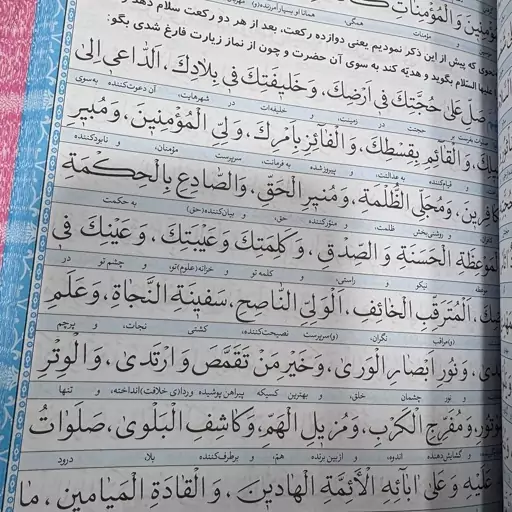 ؤمِنينَ وَالْمُؤْمِناتِ
مؤمنات همگی، همانا او بسیار آمرزنده(و) مهربان
نحوی که پیش از این ذکر نمودیم یعنی دوازده رکعت، بعد از هر دو رکعت سلام دهد و
علیها السّلام بگوید و هدیّه کند به سوی آن حضرت و چون از نماز زیارت فارغ شدی بگو:
صَلِّ عَلىٰ حُجَّتِكَ فى اَرْضِكَ، وَخَليفَتِكَ فى بِلادِكَ، اَلدّاعى اِلىٰ
حجت در زمینت، و خلیفه‌ات در شهرهایت، آن دعوت‌کننده به‌سوی
بيلِكَ، وَالْقائِمِ بِقِسْطِكَ، وَالْفائِزِ بِاَمْرِكَ، وَلِىِّ الْمُؤْمِنينَ، وَمُبيرِ
و قیام‌کننده به عدالتت، و پیروز شده به فرمانت، سرپرست مؤمنان، و نابودکننده
كافِرينَ، وَمُجَلِّى الظُّلْمَةِ، وَمُنيرِ الْحَقِّ، وَالصّادِعِ بِالْحِكْمَةِ
کافران، و روشنی‌بخش ظلمت، و منوّرکننده حق، و بیان‌کننده(حق) به حکمت
الْمَوْعِظَةِ الْحَسَنَةِ وَالصِّدْقِ، وَكَلِمَتِكَ وَعَيْبَتِكَ، وَعَيْنِكَ فى
موعظه نیکو و راستی، و کلمه تو و خزانه(علوم)تو، و چشم تو در
ضِكَ، اَلْمُتَرَقِّبِ الْخائِفِ، اَلْوَلِىِّ النّاصِحِ، سَفينَةِ النَّجاةِ، وَعَلَمِ
(و)مراقب نگران، (و)سرپرست نصیحت‌کننده، کشتی نجات، و پرچم
ـدىٰ، وَنُورِ اَبْصارِ الْوَرىٰ، وَخَيْرِ مَنْ تَقَمَّصَ وَارْتَدىٰ، وَالْوِتْرِ
و نور چشمان خلق، و بهترین کسیکه پیراهن پوشیده و ردا(ی خلافت)انداخته، و تنها
ـوْتُورِ، وَمُفَرِّجِ الْكَرْبِ، وَمُزيلِ الْهَمِّ، وَكاشِفِ الْبَلْوىٰ، صَلَواتُ
و گشایش‌دهنده اندوه، و از بین برنده هم، و برطرف‌کننده بلا، درود
عَلَيْهِ وَعَلىٰ ابائِهِ الْاَئِمَّةِ الْهادينَ، وَالْقادَةِ الْمَيامينِ، ما